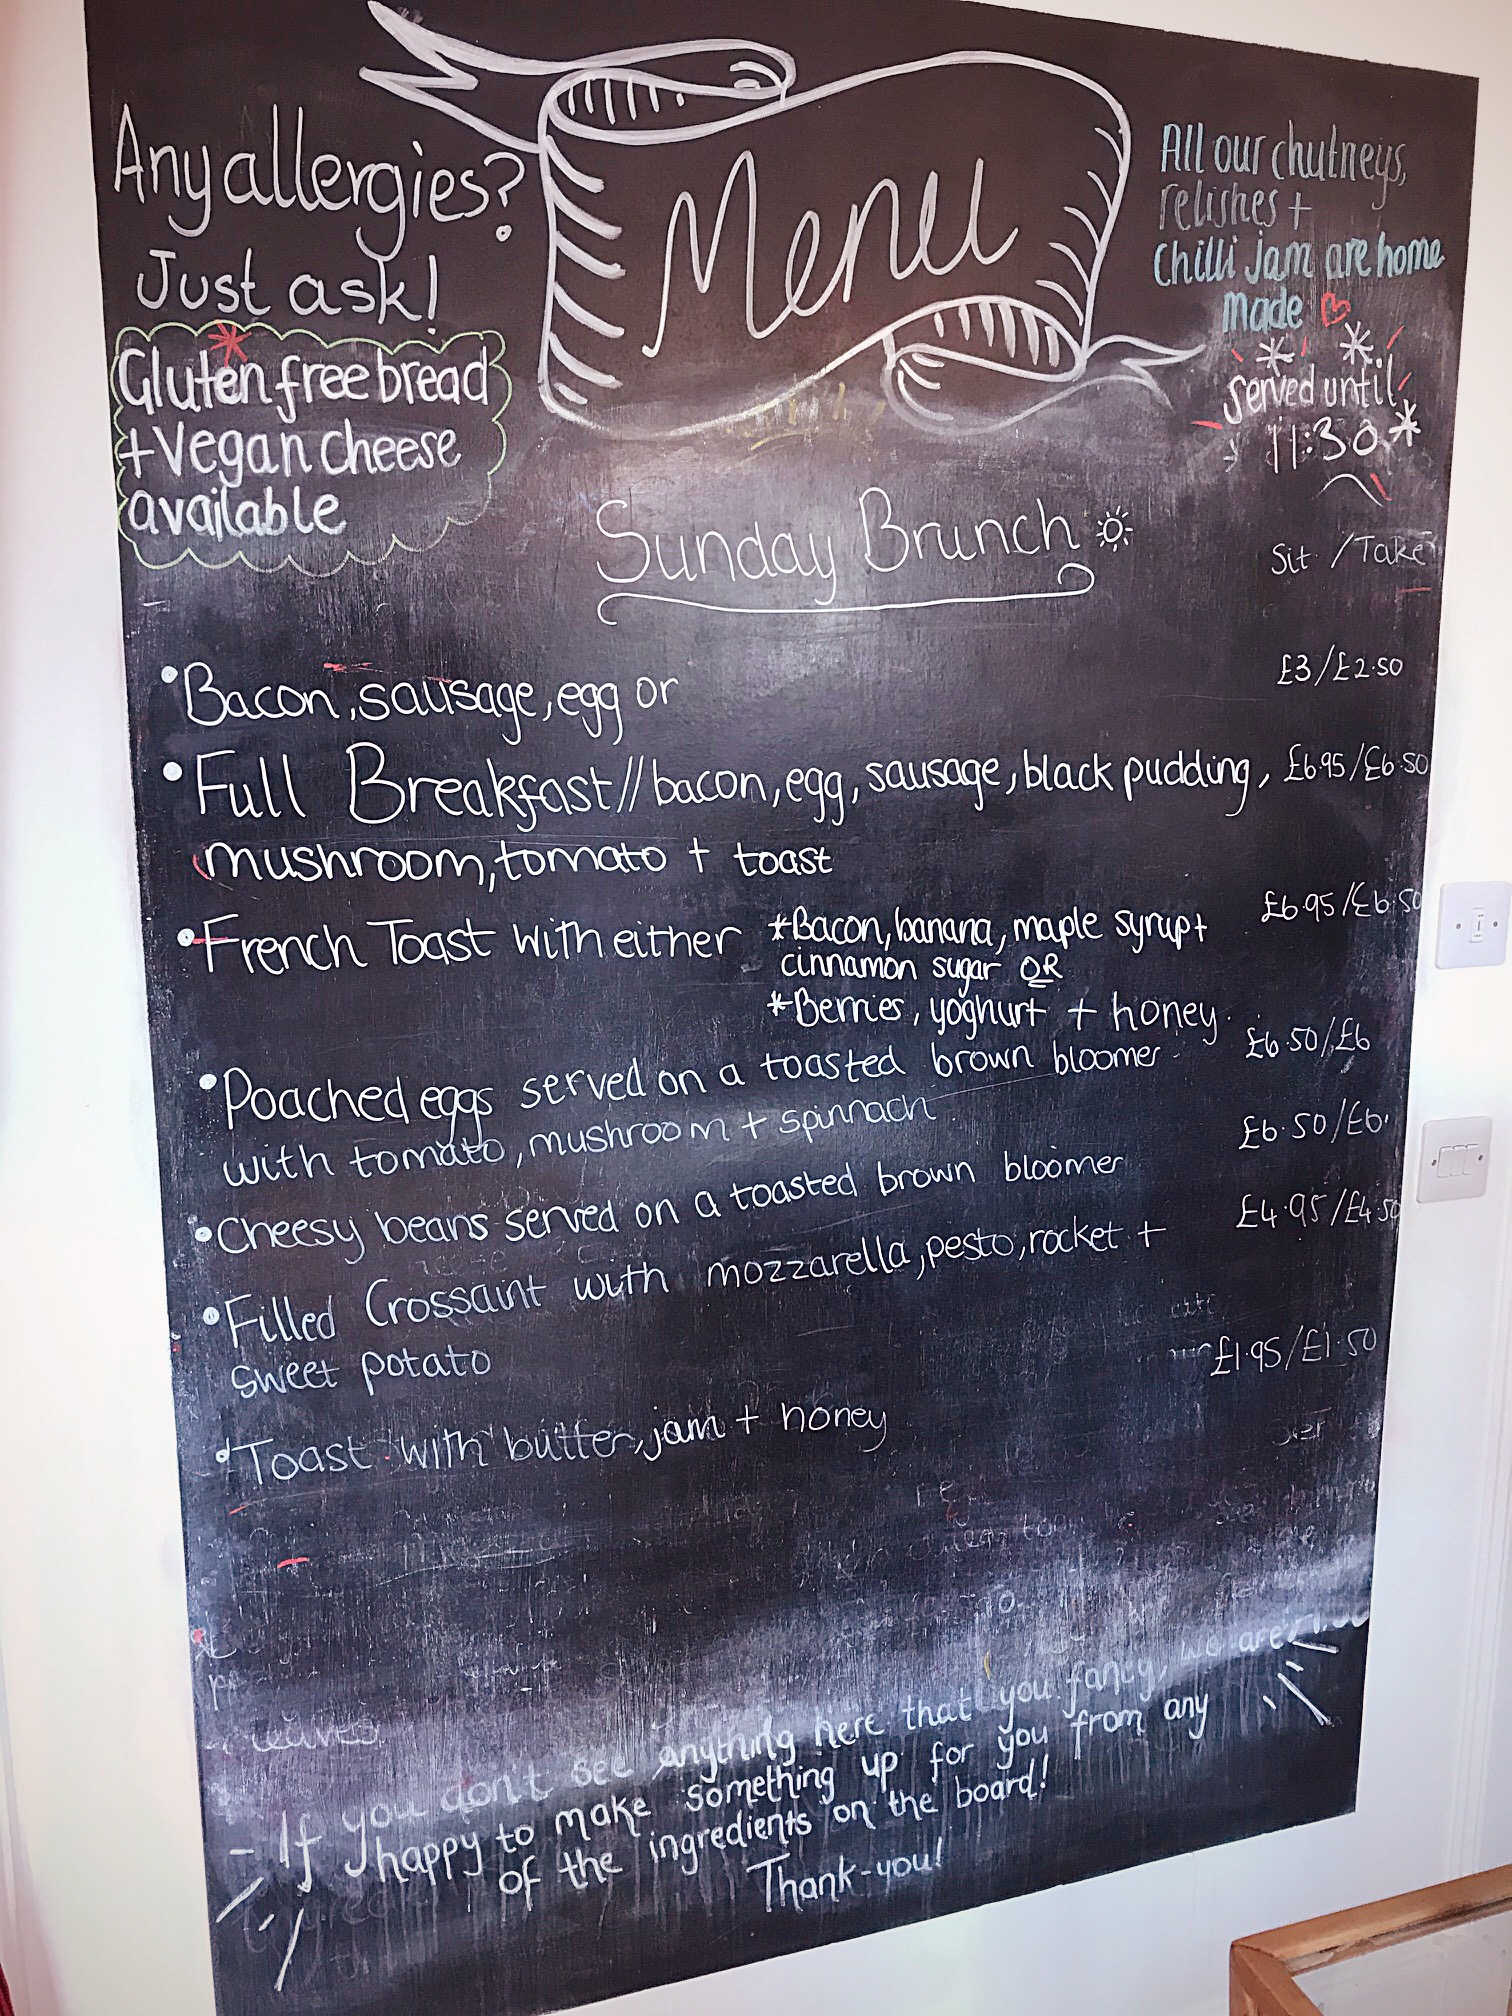 Any allergies?
Just ask!
Gluten free bread
+ Vegan cheese
available
Menu
All our chutneys,
relishes +
chilli jam are home
made
served until
11:30
Sunday Brunch
Sit / Take
• Bacon, sausage, egg or £3/£2.50
• Full Breakfast // bacon, egg, sausage, black pudding, £6.95/£6.50
mushroom, tomato + toast
• French Toast with either *Bacon, banana, maple syrup + £6.95/£6.50
cinnamon sugar OR
*Berries, yoghurt + honey.
• Poached eggs served on a toasted brown bloomer £6.50/£6
with tomato, mushroom + spinnach
• Cheesy beans served on a toasted brown bloomer £6.50/£6
• Filled Crossaint with mozzarella, pesto, rocket + £4.95/£4.50
sweet potato
• Toast with butter, jam + honey £1.95/£1.50
- If you don't see anything here that you fancy, we are
happy to make something up for you from any
of the ingredients on the board!
Thank-you!